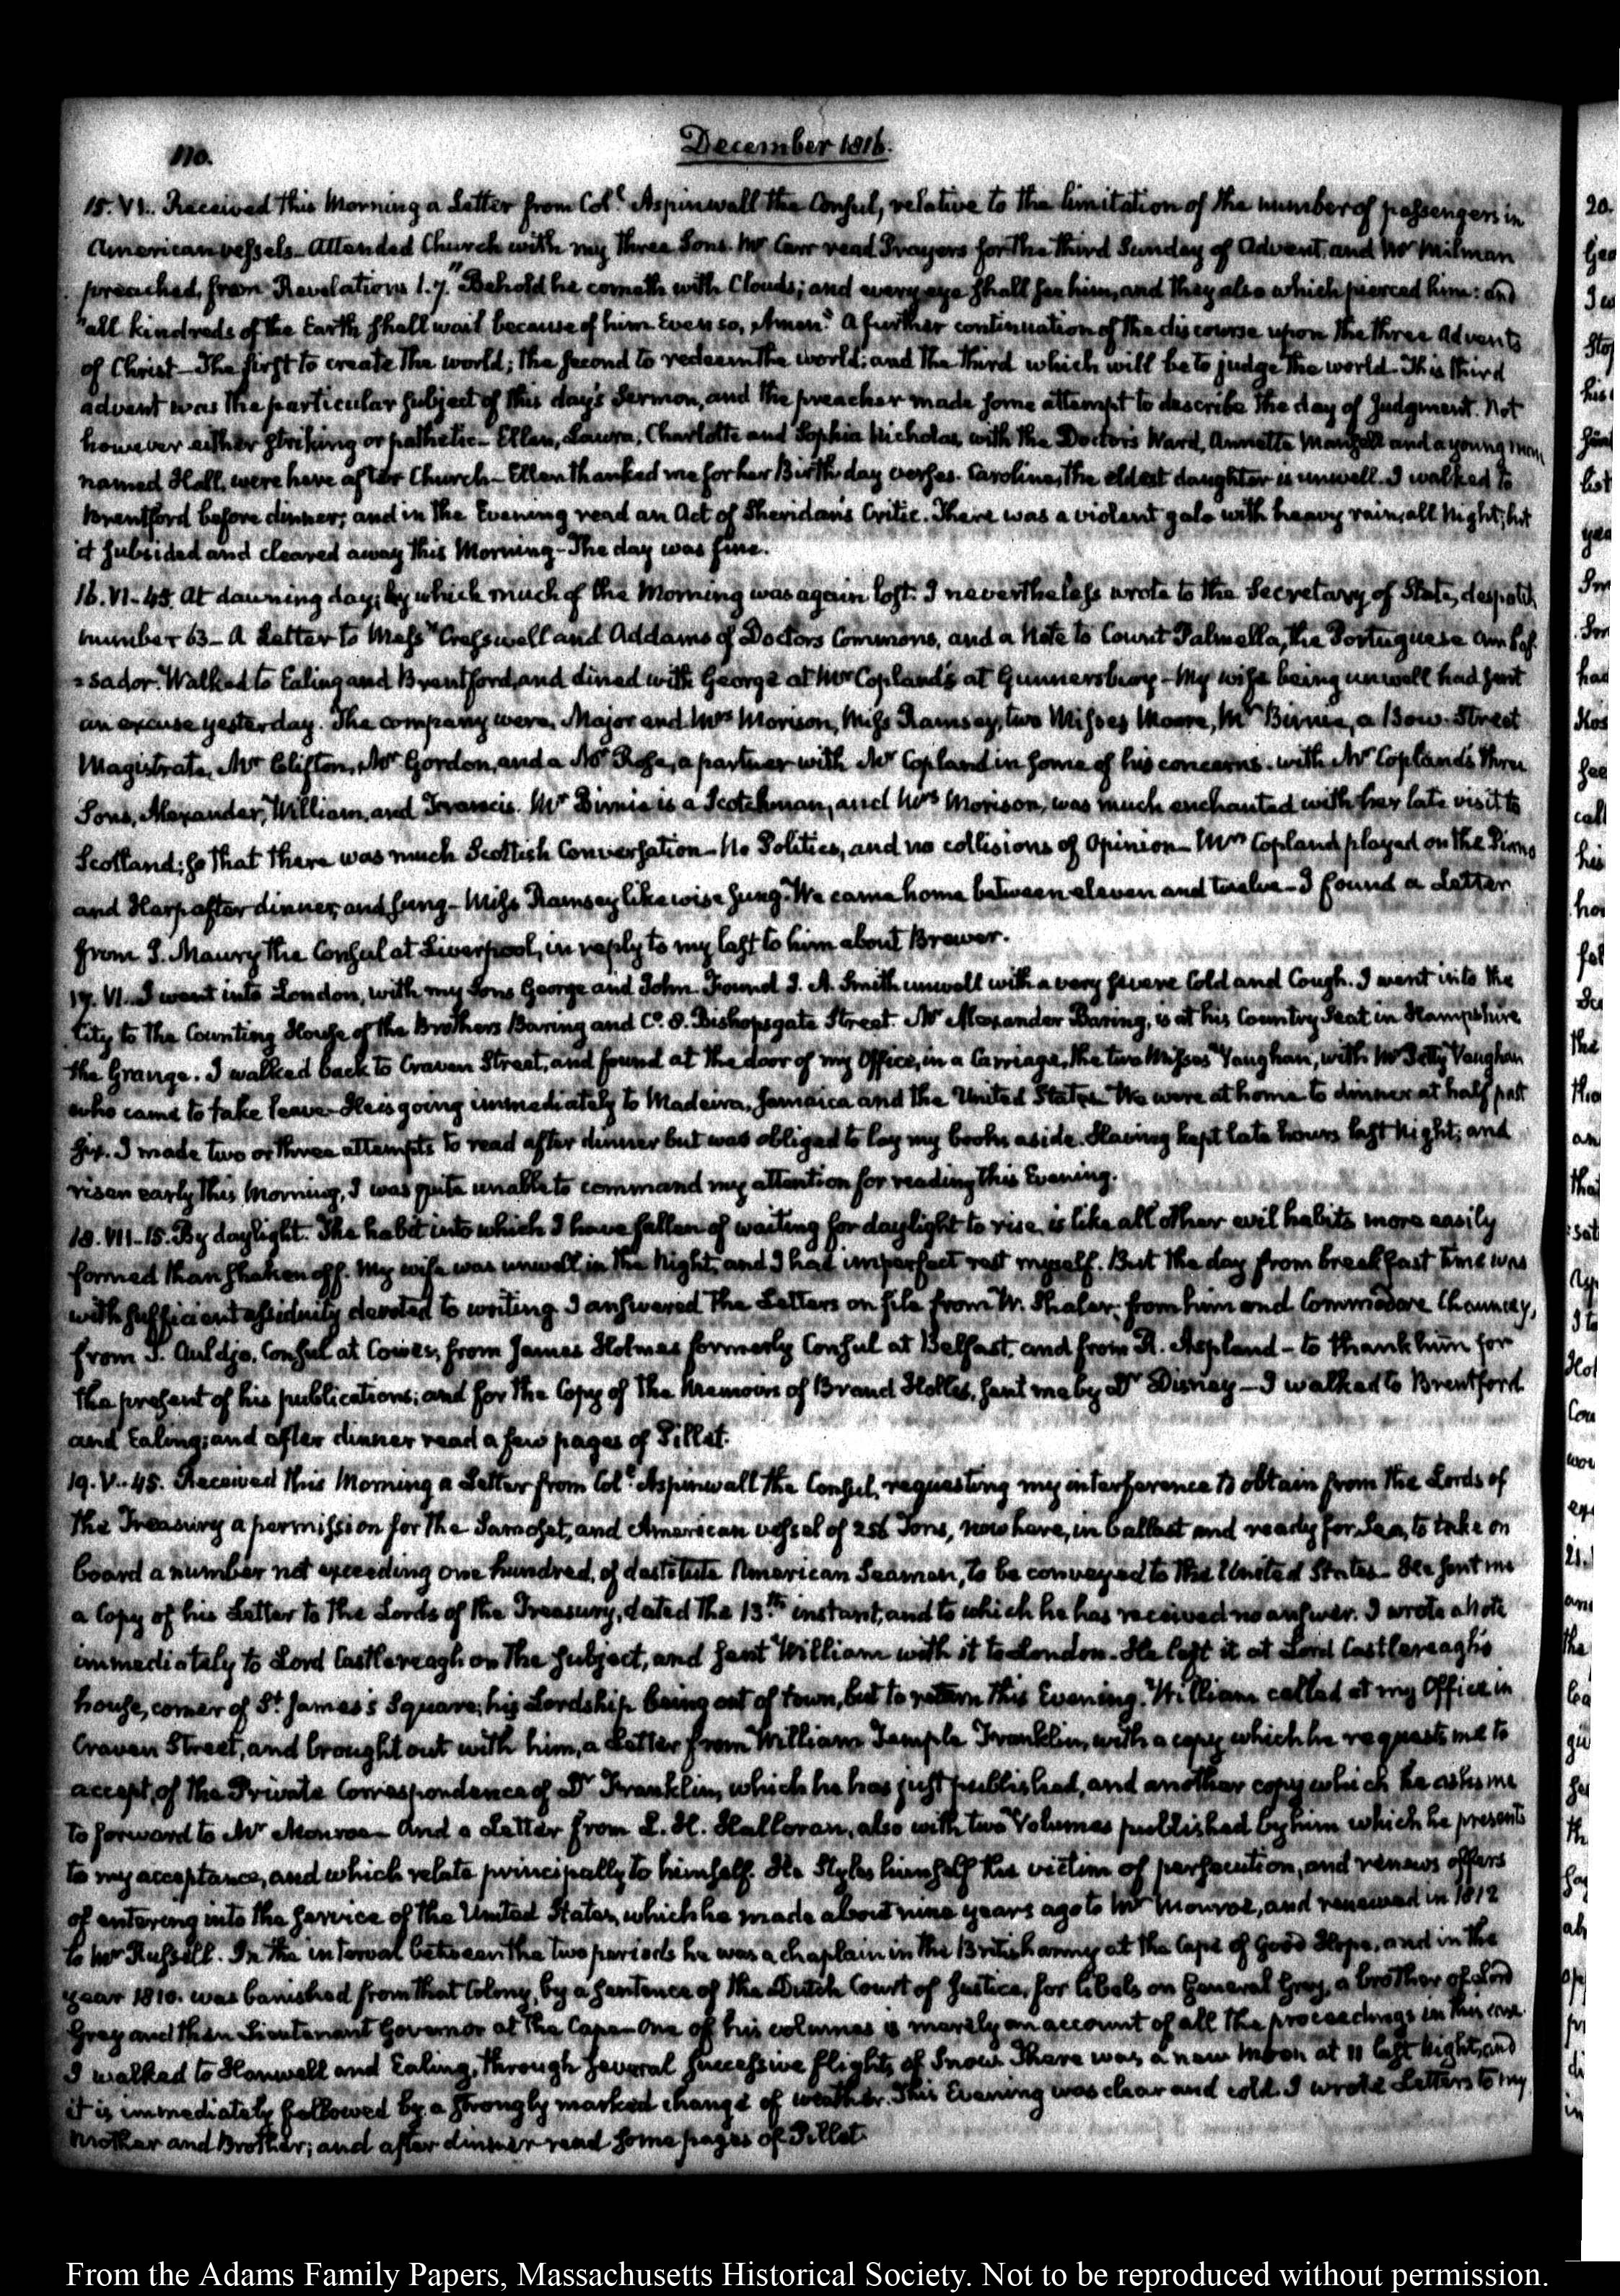 110.
December 1816.
15. VI.. Received this Morning a Letter from Col.l Aspinwall the Consul, relative to the limitation of the number of passengers in
American vessels. Attended Church with my three Sons. Mr Carr read Prayers for the third Sunday of Advent, and Mr Milman
preached, from Revelations 1.7. "Behold he cometh with Clouds; and every eye shall see him, and they also which pierced him: and
"all kindreds of the Earth shall wail because of him Even so, Amen." A further continuation of the discourse upon the three Advents
of Christ—The first to create the world; the second to redeem the world: and the third which will be to judge the world. This third
advent was the particular subject of this day's Sermon, and the preacher made some attempt to describe the day of Judgment. Not
however either striking or pathetic—Ellen, Laura, Charlotte and Sophia Nicholas, with the Doctor's Ward, Annette and a young man
named Hall, were here after Church—Ellen thanked me for her Birth day verses. Caroline, the eldest daughter is unwell. I walked to
Brentford before dinner; and in the Evening read an Act of Sheridan's Critic. There was a violent gale with heavy rain, all Night; but
it subsided and cleared away this Morning—The day was fine.
16. VI-45. At dawning day; by which much of the Morning was again lost. I nevertheless wrote to the Secretary of State, despatch
number 63—A Letter to Messrs Cresswell and Addams of Doctors Commons, and a Note to Count Palmella, the Portuguese Ambas
=sador. Walked to Ealing and Brentford, and dined with George at Mr Copland's at Gunnersbury—My wife being unwell had sent
an excuse yesterday. The company were, Major and Mrs Morison, Miss Ramsay, two Misses Moore, Mr Birnie, a Bow-Street
Magistrate, Mr Clifton, Mr Gordon, and a Mr Rose, a partner with Mr Copland in some of his concerns. with Mr Copland's three
Sons, Alexander, William, and Francis. Mr Birnie is a Scotchman, and Mrs Morison, was much enchanted with her late visit to
Scotland; so that there was much Scottish Conversation—No Politics, and no collisions of Opinion—Mrs Copland played on the Piano
and Harp after dinner, and sung—Miss Ramsay likewise sung. We came home between eleven and twelve—I found a Letter
from J. Maury the Consul at Liverpool, in reply to my last to him about Brewer.
17. VI.. I went into London, with my Sons George and John. Found J. A. Smith unwell with a very severe Cold and Cough. I went into the
City to the Counting House of the Brothers Baring and Co. 8. Bishopsgate Street. Mr Alexander Baring, is at his Country Seat in Hampshire
the Grange. I walked back to Craven Street, and found at the door of my Office, in a Carriage, the two Misses Vaughan, with Mr Petty Vaughan
who came to take leave—He is going immediately to Madeira, Jamaica and the United States. We were at home to dinner at half past
six. I made two or three attempts to read after dinner but was obliged to lay my books aside. Having kept late hours last Night; and
risen early this Morning, I was quite unable to command my attention for reading this Evening.
18. VII-15. By daylight. The habit into which I have fallen of waiting for daylight to rise, is like all other evil habits more easily
formed than shaken off. My wife was unwell in the Night, and I had imperfect rest myself. But the day from breakfast time was
with sufficient assiduity devoted to writing. I answered the Letters on file from W. Shaler; from him and Commodore Chauncey,
from J. Auldjo, Consul at Cowes, from James Holmes formerly Consul at Belfast, and from R. Aspland—to thank him for
the present of his publications; and for the Copy of the Memoirs of Brand Hollis, sent me by Dr Disney—I walked to Brentford
and Ealing; and after dinner read a few pages of Pillet.
19. V..45. Received this Morning a Letter from Col.l Aspinwall the Consul, requesting my interference to obtain from the Lords of
the Treasury a permission for the Samoset, and American vessel of 256 Tons, now here, in ballast and ready for Sea, to take on
board a number not exceeding one hundred, of destitute American Seamen, to be conveyed to the United States—He sent me
a Copy of his Letter to the Lords of the Treasury, dated the 13th instant, and to which he has received no answer. I wrote a Note
immediately to Lord Castlereagh on the subject, and sent William with it to London. He left it at Lord Castlereagh's
house, corner of St James's Square; his Lordship being out of town, but to return this Evening. William called at my Office in
Craven Street, and brought out with him, a Letter from William Temple Franklin, with a copy which he requests me to
accept, of the Private Correspondence of Dr Franklin, which he has just published, and another copy which he asks me
to forward to Mr Monroe—And a Letter from L. H. Halloran, also with two Volumes published by him which he presents
to my acceptance, and which relate principally to himself. He Styles himself the victim of persecution, and renews offers
of entering into the service of the United States, which he made about nine years ago to Mr Monroe, and renewed in 1812
to Mr Russell. In the interval between the two periods he was a chaplain in the British army at the Cape of Good Hope, and in the
year 1810. was banished from that Colony, by a sentence of the Dutch Court of Justice, for libels on General Grey, a brother of Lord
Grey and then Lieutenant Governor at the Cape—One of his volumes is merely an account of all the proceedings in this case.
I walked to Hanwell and Ealing, through several successive flights of Snow. There was a new Moon at 11 last Night, and
it is immediately followed by a strongly marked change of weather. This Evening was clear and cold. I wrote Letters to my
Mother and Brother; and after dinner read some pages of Pillet.
From the Adams Family Papers, Massachusetts Historical Society. Not to be reproduced without permission.